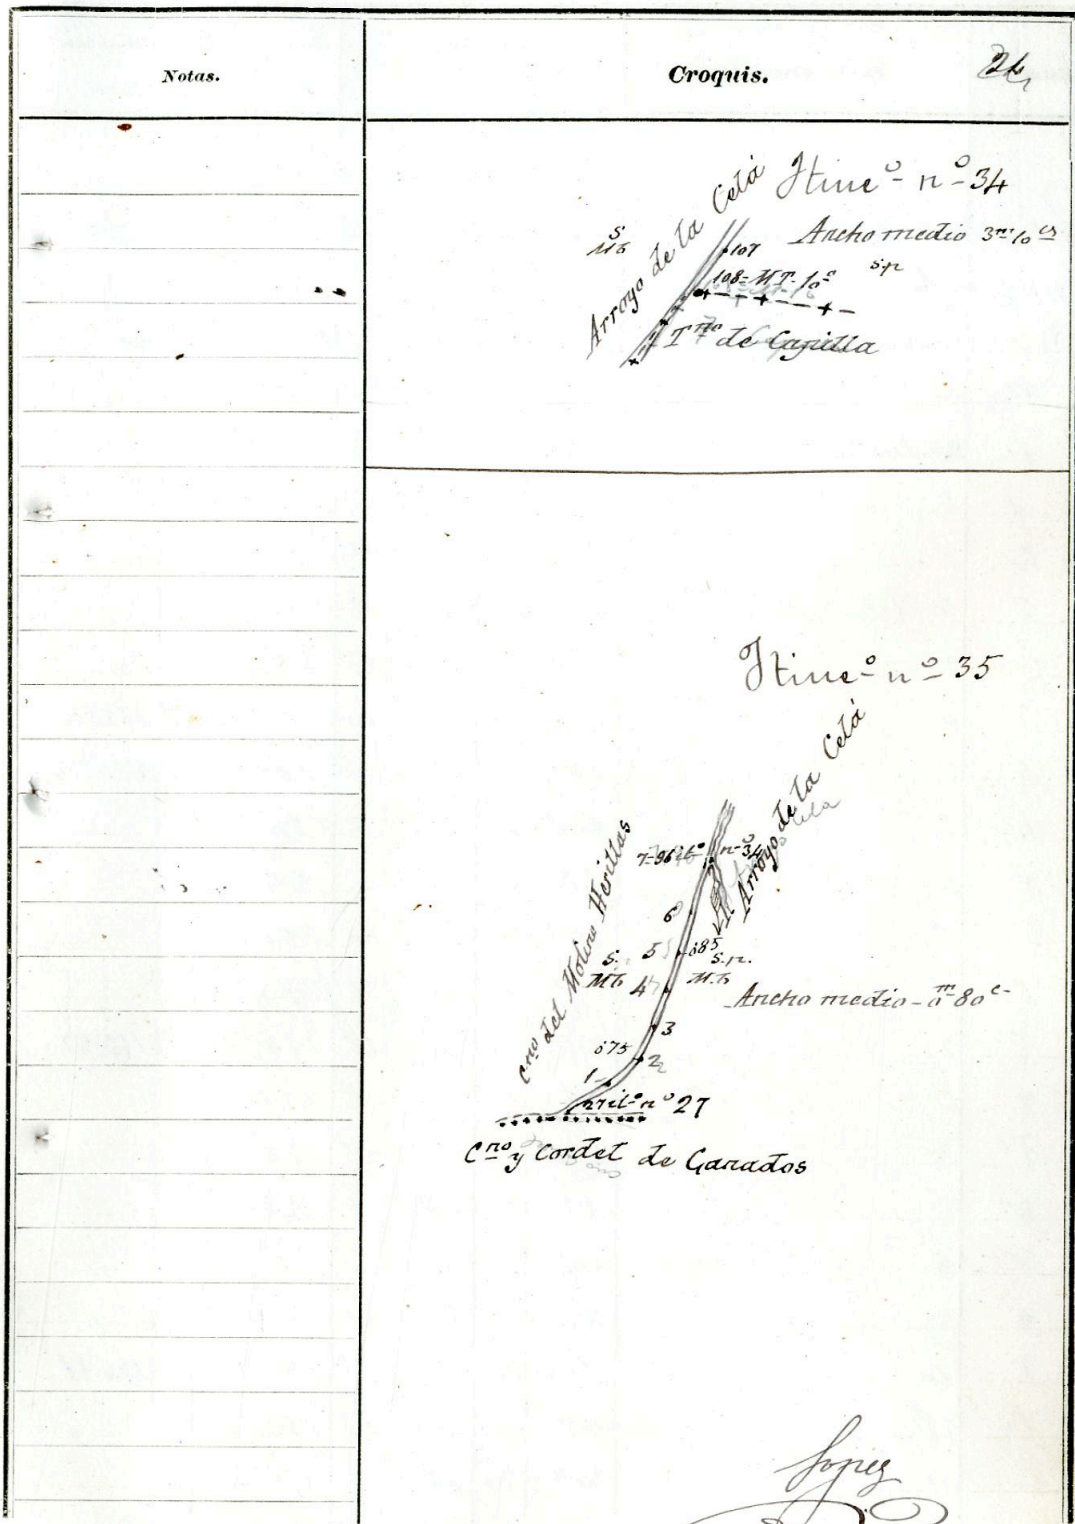 Notas.
Croquis.
Itineº nº 34
Arroyo de la Celá
S
Mb
107
Ancho medio 3m 10 cs
s.p.
108=MT. 10º
Tno de Capilla
Itineº nº 35
Arroyo de la Celá
cno del Molino Herillas
7=96 itº nº 34
6
5
085
s.p.
S.
Mb 4
M.b
Ancho medio - 0m 80 c-
3
075
2
1
27 itº nº 27
Cno y Cordel de Ganados
Lopez